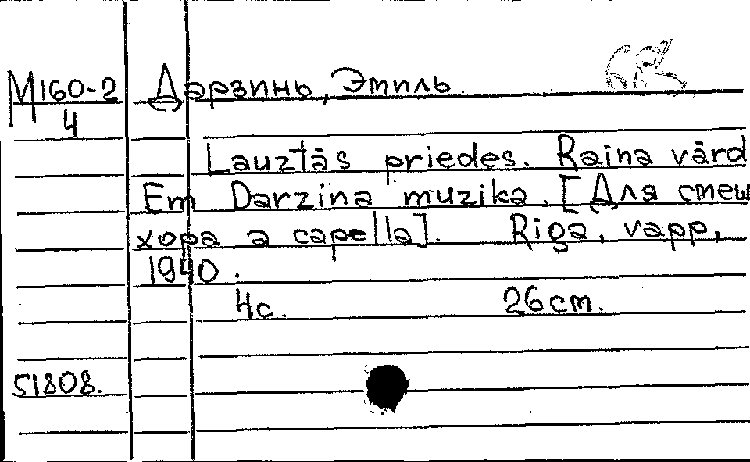 М160-2 Дарзинь, Этиль
4
Lauztās priedes. Raina vārd
Em Darzina muzika. [Для смеш
хора a capella]. Riga, vapp,
1940.
4с. 26cm.
51808.